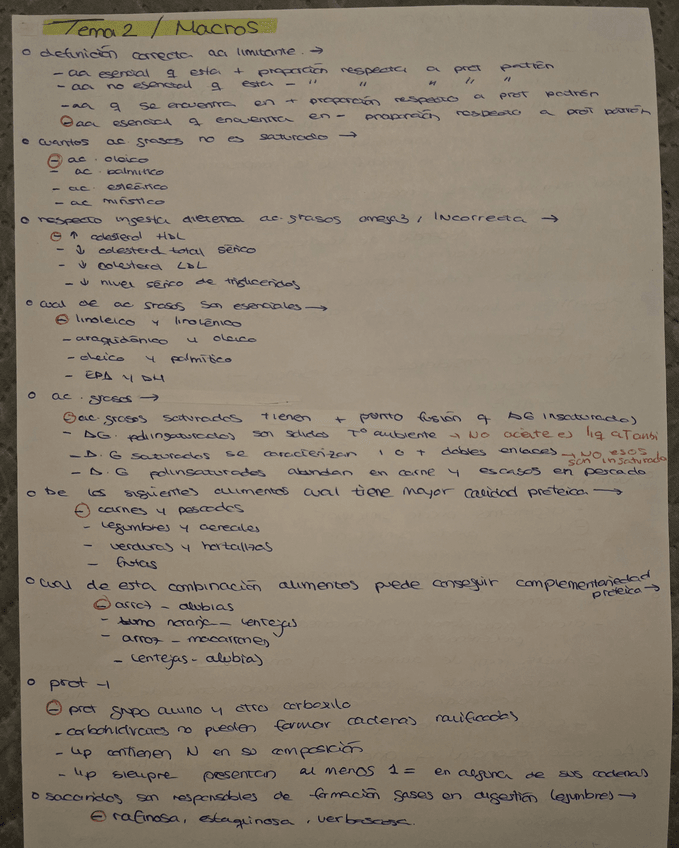 Tema 2 / Macros
o definición correcta aa limitante. →
- aa esencial q esta + proporción respecta a prot patrón
- aa no esencial q esta - " " " " "
- aa q se encuentra en + proporción respecto a prot patrón
- aa esencial q encuentra en - proporción respecto a prot patrón
o cuantos ac grasos no es saturado →
- ac. oleico
- ac. palmitico
- ac. esteárico
- ac miristico
o respecto ingesta dietetica ac. grasos omega3, INcorrecta →
- ↑ colesterol HDL
- ↓ colesterol total sérico
- ↓ colesterol LDL
- ↓ nivel sérico de trigliceridos
o cual de ac grasos son esenciales →
- linoleico y linolénico
- araquidónico y oleico
- oleico y palmitico
- EPA y DH
o ac. grasos →
- ac. grasos saturados tienen + punto fusión q AG insaturados
- AG. poliinsaturados son sólidos Tº ambiente → NO aceite es liq a Tambi
- A. G saturados se caracterizan 1 o + dobles enlaces → NO esos son insaturado
- A. G polinsaturados abundan en carne y escasos en pescado
o De los siguientes alimentos cual tiene mayor calidad proteica. →
- carnes y pescados
- legumbres y cereales
- verduras y hortalizas
- frutas
o cual de esta combinación alimentos puede conseguir complementariedad
proteica →
- arroz - alubias
- zumo naranja - lentejas
- arroz - macarrones
- lentejas - alubias
o prot →
- prot grupo amino y otro carboxilo
- carbohidratos no pueden formar cadenas ramificadas
- lip contienen N en su composición
- lip siempre presentan al menos 1 = en alguna de sus cadenas
o sacaridos son responsables de formación gases en digestión legumbres →
- rafinosa, estaquinosa, verbascosa.